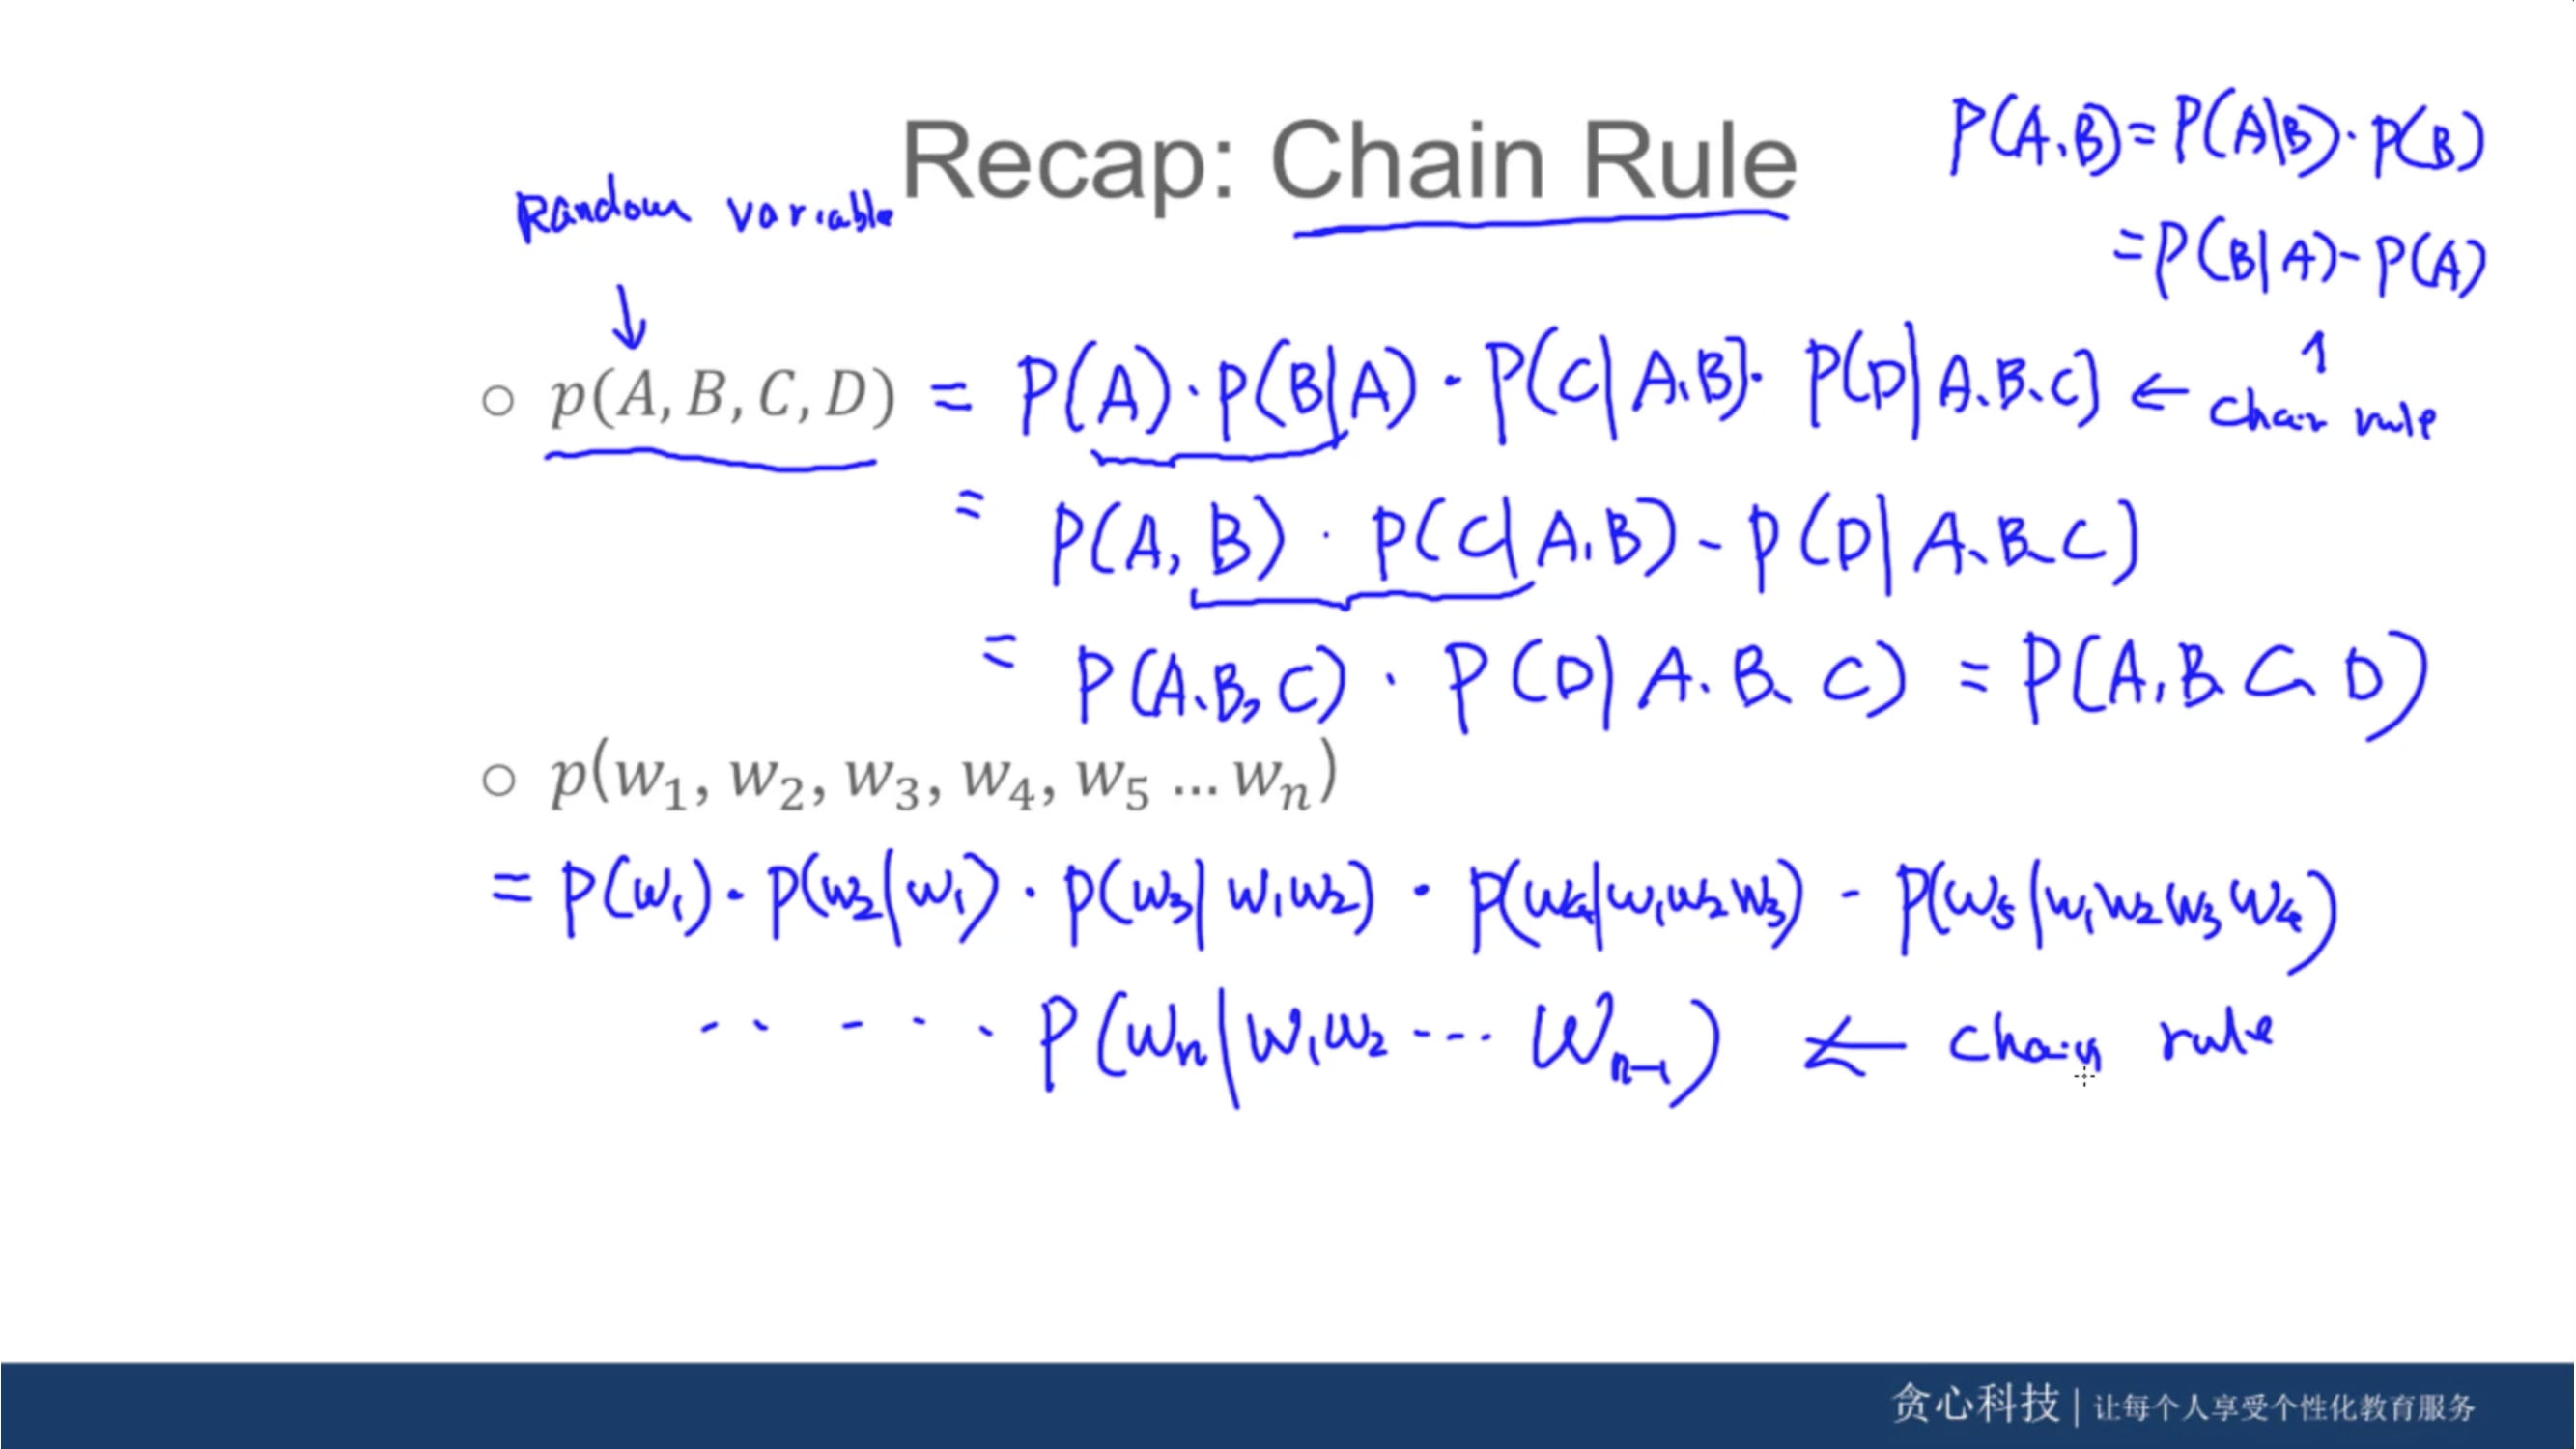 Recap: Chain Rule
P(A,B)=P(A|B)·P(B)
=P(B|A)-P(A)
Random variable
↓
↑
○ p(A, B, C, D) = P(A)·P(B|A)·P(C|A,B]·P(D|A.B.C] ← chain rule
= P(A,B)·P(C|A,B)-P(D|A.B.C)
= P(A.B,C)·P(D|A.B.C) = P(A,B.C,D)
○ p(w₁, w₂, w₃, w₄, w₅ ... wₙ)
= P(w₁)·P(w₂|w₁)·P(w₃|w₁w₂)·P(w₄|w₁w₂w₃)-P(w₅|w₁w₂w₃w₄)
·· - ··· P(wₙ|w₁w₂---wₙ₋₁) ← chain rule
贪心科技 | 让每个人享受个性化教育服务